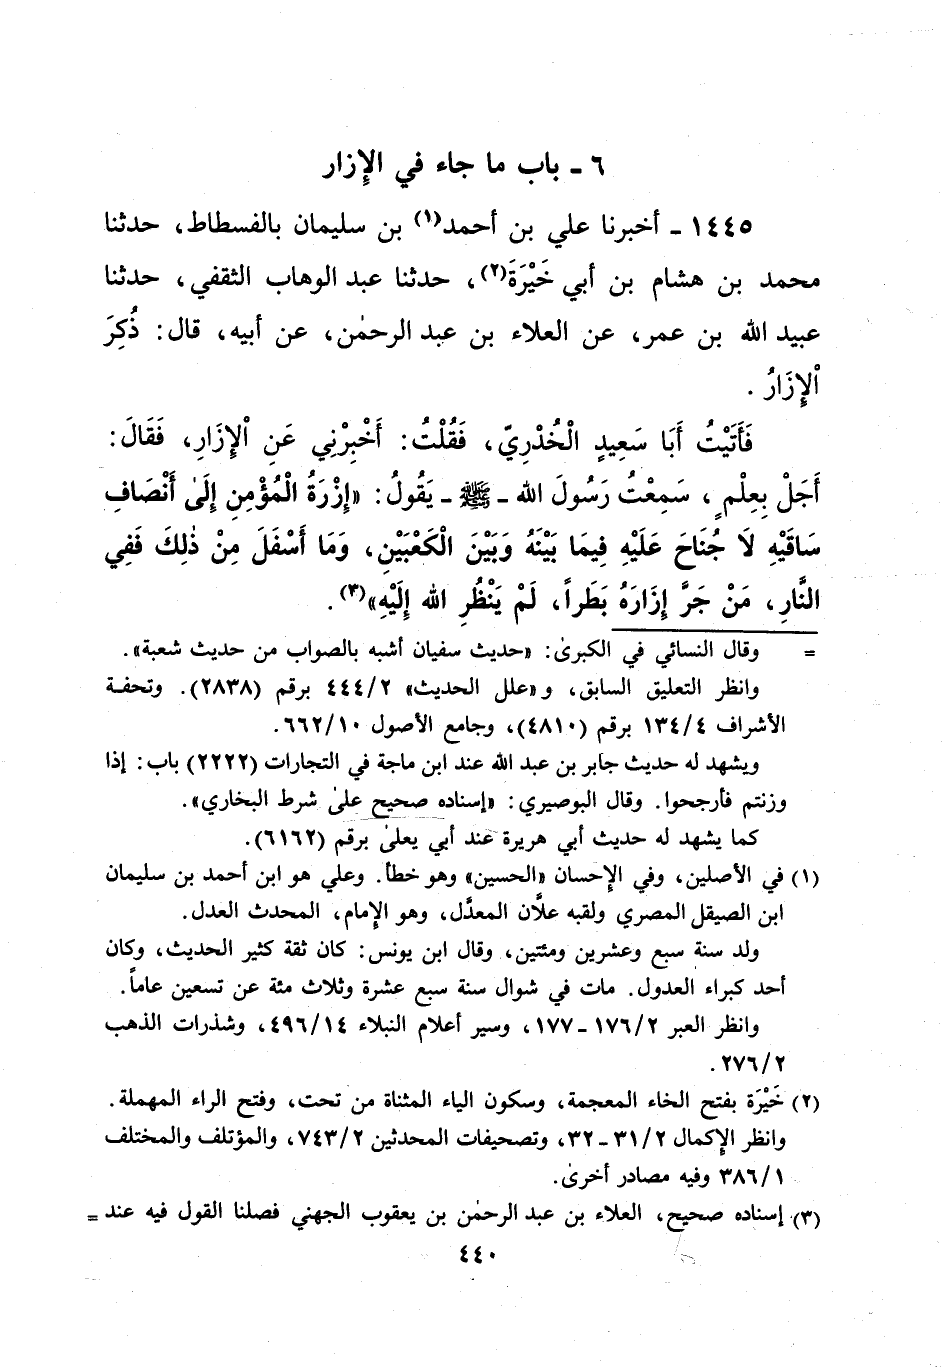 ٦ ـ باب ما جاء في الإزار
١٤٤٥ ـ أخبرنا علي بن أحمد(١) بن سليمان بالفسطاط، حدثنا
محمد بن هشام بن أبي خَيْرَةَ(٢)، حدثنا عبد الوهاب الثقفي، حدثنا
عبيد الله بن عمر، عن العلاء بن عبد الرحمٰن، عن أبيه، قال: ذُكِرَ
اْلإِزَارُ .
فَأَتَيْتُ أَبَا سَعِيدٍ الْخُدْرِيّ، فَقُلْتُ: أَخْبِرْنِي عَنِ اْلإِزَارِ، فَقَالَ:
أَجَلْ بِعِلْمٍ، سَمِعْتُ رَسُولَ الله ـ ﷺ ـ يَقُولُ: «إِزْرَةُ الْمُؤْمِنِ إِلَىٰ أَنْصَافِ
سَاقَيْهِ لَا جُنَاحَ عَلَيْهِ فِيمَا بَيْنَهُ وَبَيْنَ الْكَعْبَيْنِ، وَمَا أَسْفَلَ مِنْ ذٰلِكَ فَفِي
النَّارِ، مَنْ جَرَّ إِزَارَهُ بَطَراً، لَمْ يَنْظُرِ الله إِلَيْهِ»(٣).
= وقال النسائي في الكبرىٰ: «حديث سفيان أشبه بالصواب من حديث شعبة».
وانظر التعليق السابق، و«علل الحديث» ٤٤٤/٢ برقم (٢٨٣٨). وتحفة
الأشراف ١٣٤/٤ برقم (٤٨١٠)، وجامع الأصول ٦٦٢/١٠.
ويشهد له حديث جابر بن عبد الله عند ابن ماجة في التجارات (٢٢٢٢) باب: إذا
وزنتم فأرجحوا. وقال البوصيري: «إسناده صحيح علىٰ شرط البخاري».
كما يشهد له حديث أبي هريرة عند أبي يعلىٰ برقم (٦١٦٢).
(١) في الأصلين، وفي الإحسان «الحسين» وهو خطأ. وعلي هو ابن أحمد بن سليمان
ابن الصيقل المصري ولقبه علاَّن المعدَّل، وهو الإمام، المحدث العدل.
ولد سنة سبع وعشرين ومئتين، وقال ابن يونس: كان ثقة كثير الحديث، وكان
أحد كبراء العدول. مات في شوال سنة سبع عشرة وثلاث مئة عن تسعين عاماً.
وانظر العبر ١٧٦/٢ ـ ١٧٧، وسير أعلام النبلاء ٤٩٦/١٤، وشذرات الذهب
٢٧٦/٢.
(٢) خَيْرَة بفتح الخاء المعجمة، وسكون الياء المثناة من تحت، وفتح الراء المهملة.
وانظر الإكمال ٣١/٢ ـ ٣٢، وتصحيفات المحدثين ٧٤٣/٢، والمؤتلف والمختلف
٣٨٦/١ وفيه مصادر أخرىٰ.
(٣) إسناده صحيح، العلاء بن عبد الرحمٰن بن يعقوب الجهني فصلنا القول فيه عند =
٤٤٠